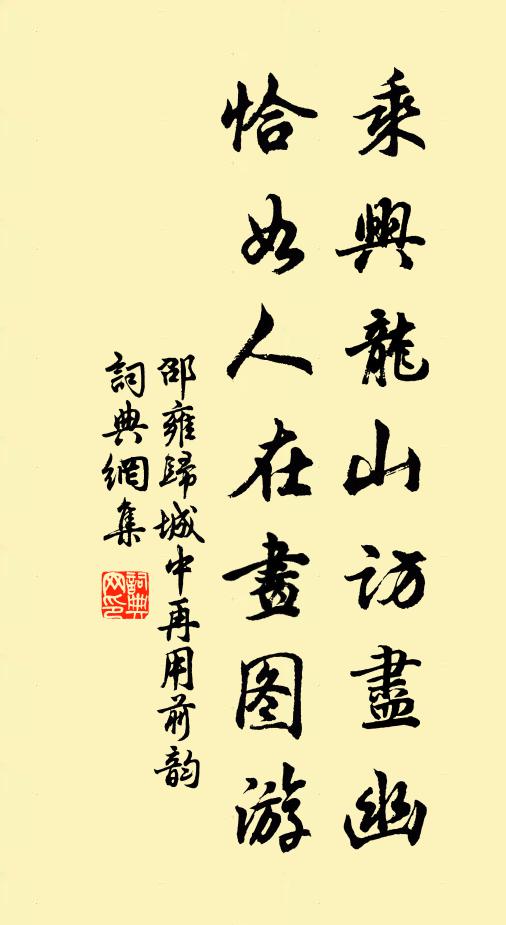 乘興龍山訪盡幽
恰如人在畫图游
邵雍歸城中再用前韵
詞典網集
詞典网印